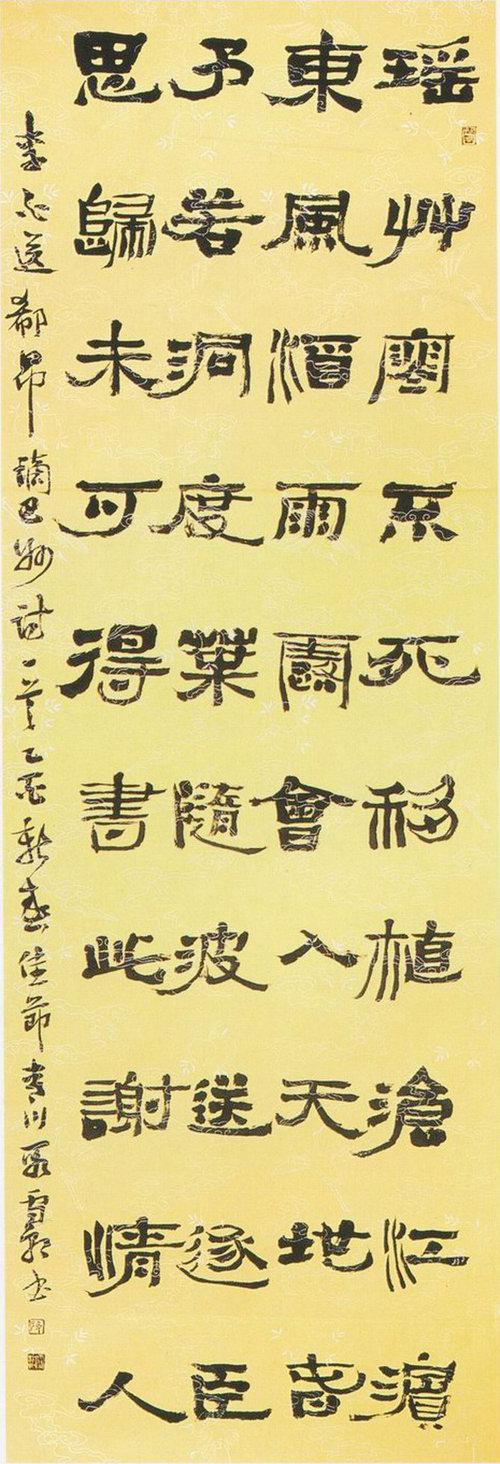 瑶艸寒不死移植滄江濱
東風洒雨露會入天地春
予若洞度葉隨波送逐臣
思歸未可得書此謝情人
李白送郗昂謫巴州詩一首乙酉新春佳節川雪书